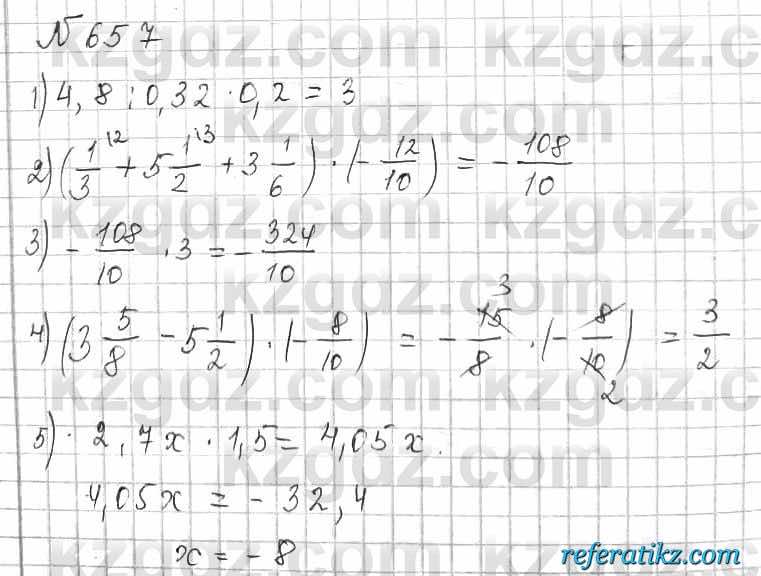 № 657
1) 4,8 : 0,32 · 0,2 = 3
2) (1/3 \2 + 5 1/2 \3 + 3 1/6) · (- 12/10) = - 108/10
3) - 108/10 · 3 = - 324/10
4) (3 5/8 - 5 1/2) · (- 8/10) = - 15/8 3 · (- 8/10 2) = 3/2
5) · 2,7x · 1,5 = 4,05x.
4,05x = - 32,4
x = - 8
kzgdz.com
referatikz.com